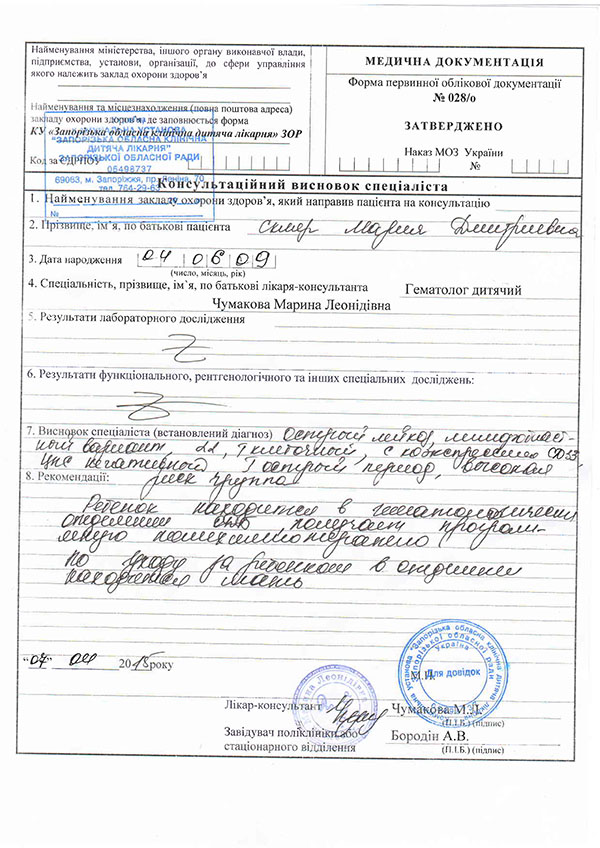 Найменування міністерства, іншого органу виконавчої влади,
підприємства, установи, організації, до сфери управління
якого належить заклад охорони здоров'я
Найменування та місцезнаходження (повна поштова адреса)
закладу охорони здоров'я, де заповнюється форма
КУ «Запорізька обласна клінічна дитяча лікарня» ЗОР
Код за ЄДРПОУ
УСТАНОВА
"ЗАПОРІЗЬКА ОБЛАСНА КЛІНІЧНА
ДИТЯЧА ЛІКАРНЯ"
ЗАПОРІЗЬКОЇ ОБЛАСНОЇ РАДИ
05498737
69063, м. Запоріжжя, пр. Леніна, 70
тел. 764-29-63
№
МЕДИЧНА ДОКУМЕНТАЦІЯ
Форма первинної облікової документації
№ 028/о
ЗАТВЕРДЖЕНО
Наказ МОЗ України
№
Консультаційний висновок спеціаліста
1. Найменування закладу охорони здоров'я, який направив пацієнта на консультацію
2. Прізвище, ім'я, по батькові пацієнта Мария Дмитриевна
3. Дата народження 04 06 09
(число, місяць, рік)
4. Спеціальність, прізвище, ім'я, по батькові лікаря-консультанта Гематолог дитячий
Чумакова Марина Леонідівна
5. Результати лабораторного дослідження
6. Результати функціонального, рентгенологічного та інших спеціальних досліджень:
7. Висновок спеціаліста (встановлений діагноз) Острый лейкоз, лимфобласт-
ный вариант, Т клеточный, с коэкспрессией CD33,
ЦНС негативный I острый период, высокая
8. Рекомендації: риск группа
Ребенок находится в гематологическом
отделении получает програм-
мную полихимиотерапию
По уходу за ребенком в отделении
находится мать
"07" 04 2018 року
М.П.
Україна
Для довідок
Лікар-консультант Чумакова М.Л.
(П.І.Б.) (підпис)
Завідувач поліклініки або Бородін А.В.
стаціонарного відділення (П.І.Б.) (підпис)